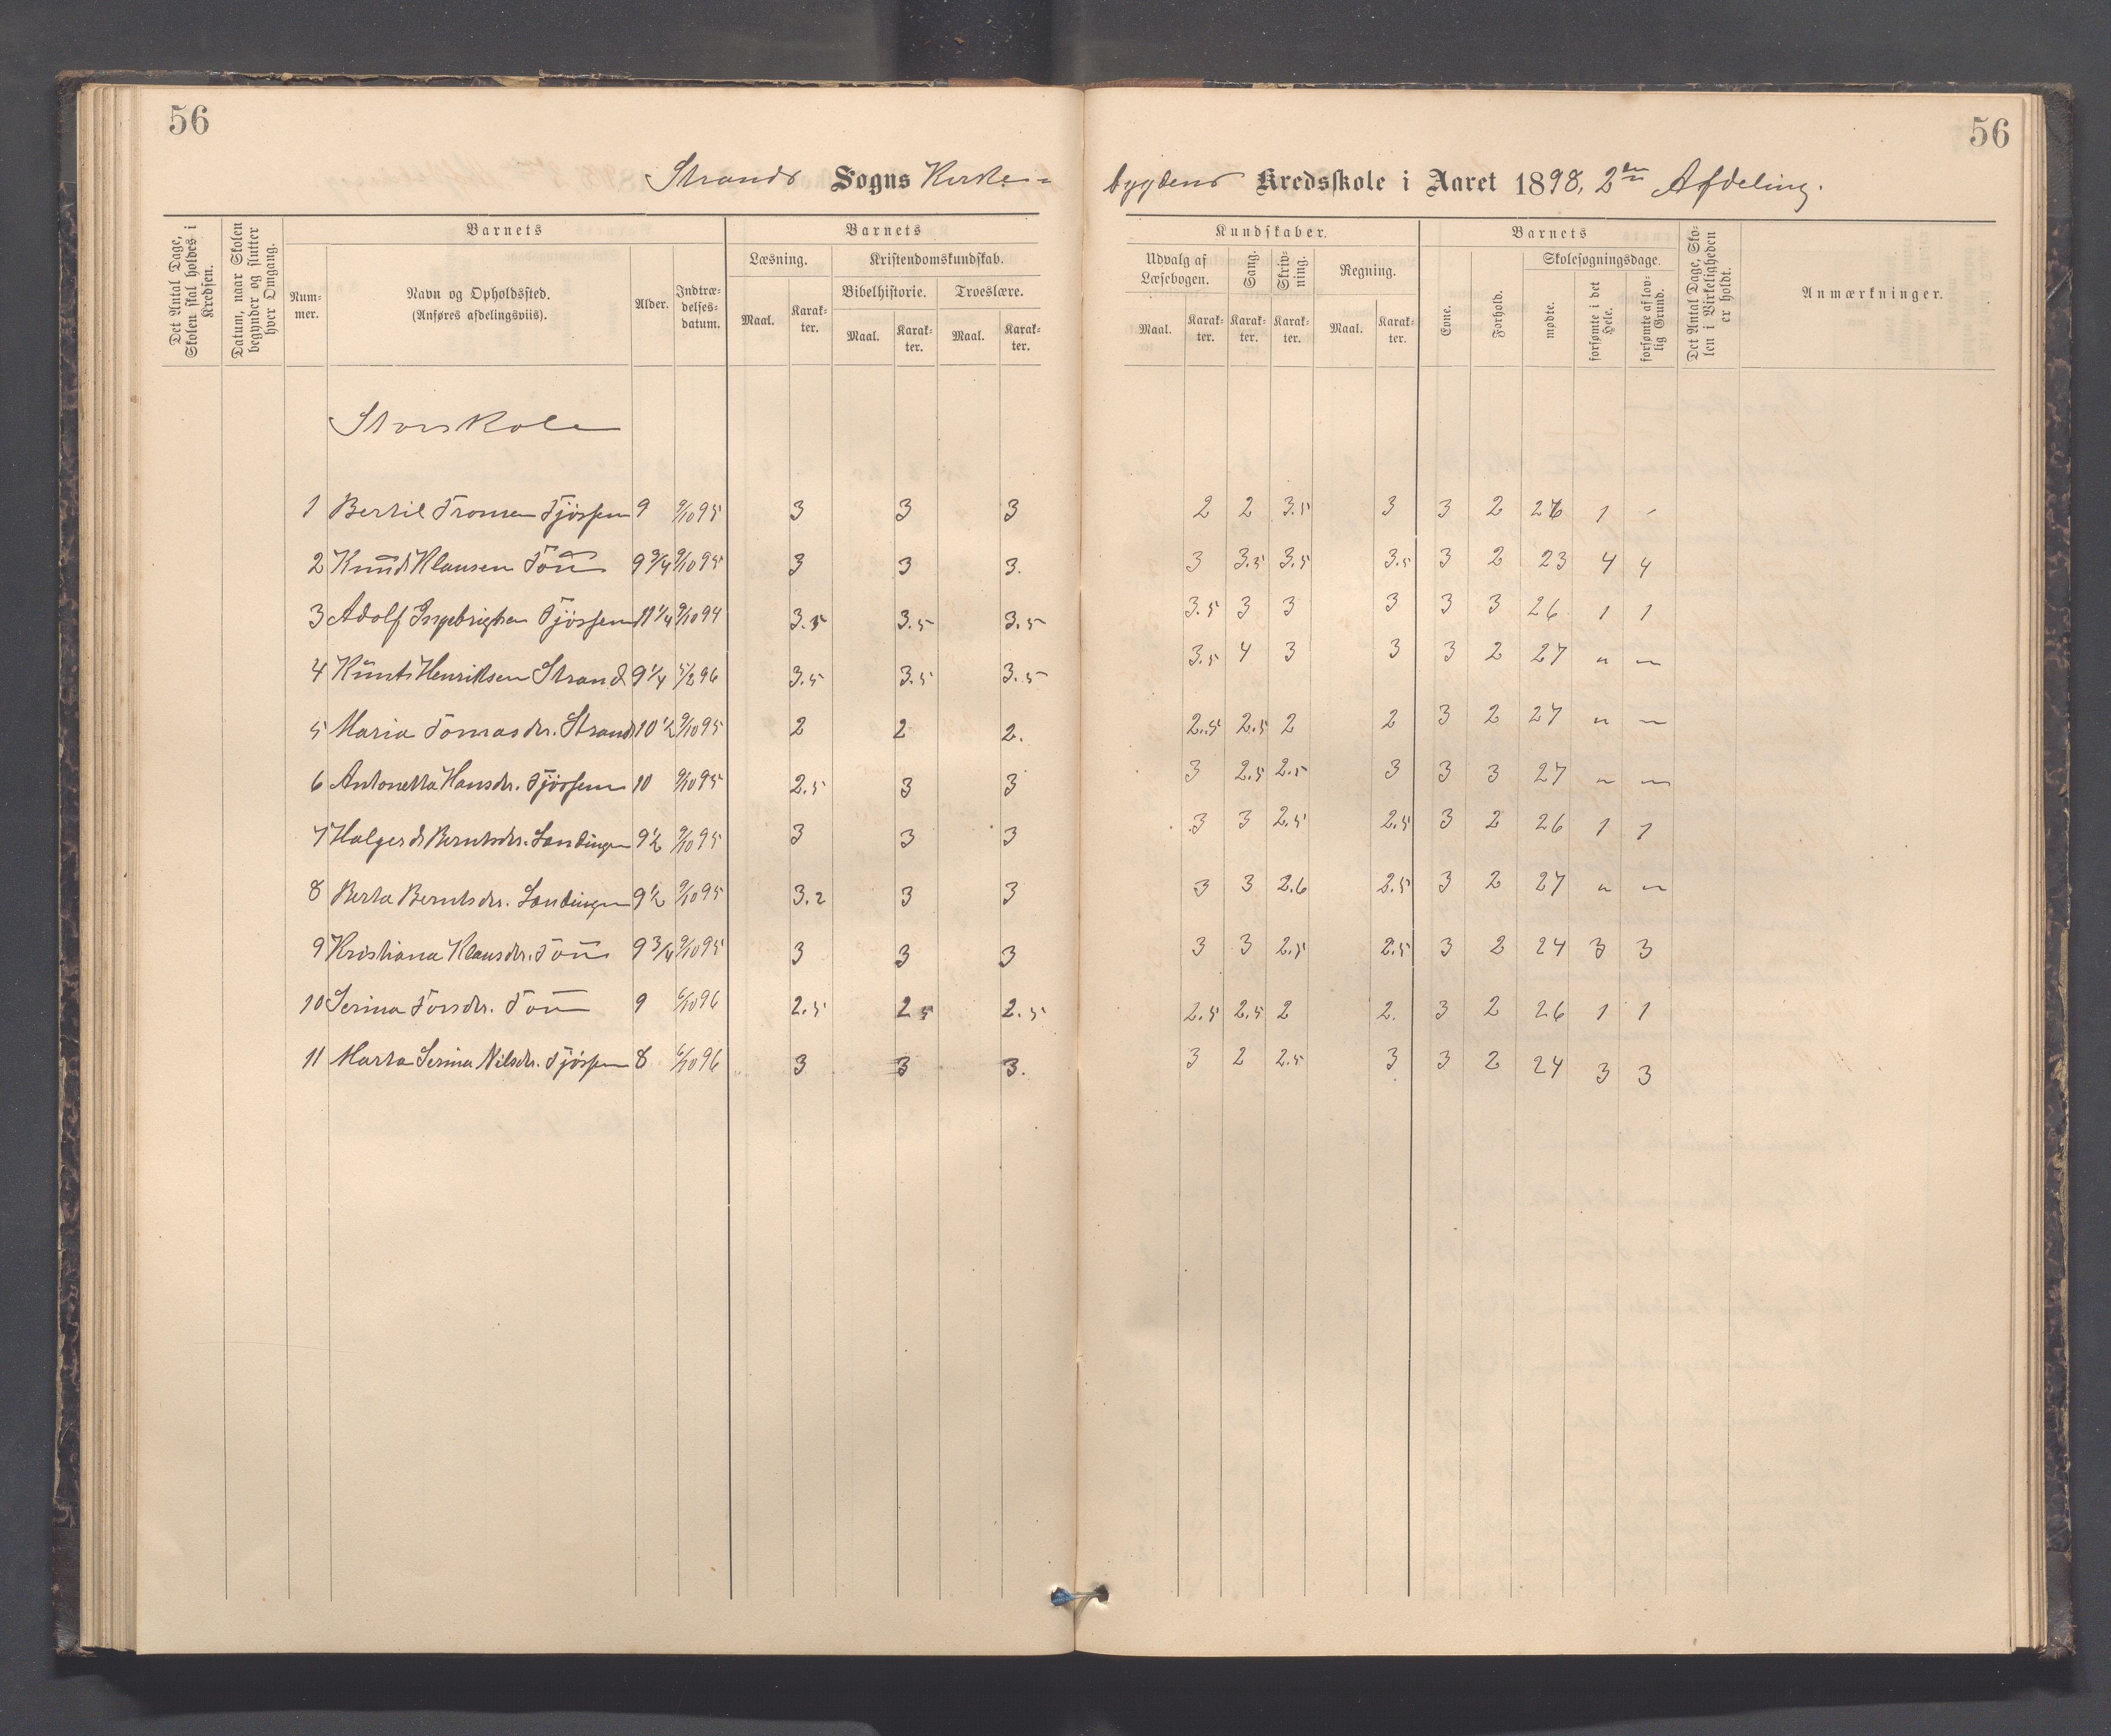 56
56
Strands Sogns Kirke-
bygdens Kredsskole i Aaret 1898, 2den Afdeling.
Det Antal Dage, Skolen skal holdes i Kredsen.
Datum, naar Skolen begynder og slutter hver Omgang.
Barnets
Nummer.
Navn og Opholdssted.
(Anføres afdelingsviis).
Alder.
Indtrædelses-datum.
Barnets
Læsning.
Maal. Karakter.
Kristendomskundskab.
Bibelhistorie.
Maal. Karakter.
Troeslære.
Maal. Karakter.
Kundskaber.
Udvalg af Læsebogen.
Maal. Karakter.
Sang.
Karakter.
Skrivning.
Karakter.
Regning.
Maal. Karakter.
Barnets
Evne.
Forhold.
Skolesøgningsdage.
mødte.
forsømte i det Hele.
forsømte af lovlig Grund.
Det Antal Dage, Skolen i Virkeligheden er holdt.
Anmærkninger.
Storskole
1 Bertil Tromsen Tjössem 9 9/10 95 3 3 3 2 2 3.5 3 3 2 26 1 -
2 Knud Klausen Tou 9 3/4 9/10 95 3 3 3. 3 3.5 3.5 3.5 3 2 23 4 4
3 Adolf Ingebrigtsen Tjössem 11 1/4 9/10 94 3.5 3.5 3.5 3.5 3 3 3 3 3 26 1 1
4 Knut Henriksen Strand 9 1/4 5/2 96 3.5 3.5 3.5 3.5 4 3 3 3 2 27 " "
5 Maria Tomasdtr. Strand 10 1/2 9/10 95 2 2 2. 2.5 2.5 2 2 3 2 27 " "
6 Antonetta Hansdtr. Tjössem 10 9/10 95 2.5 3 3 3 2.5 2.5 3 3 3 27 " "
7 Halgerd Berntsdtr. Landingen 9 1/2 9/10 95 3 3 3 3 3 2.5 2.5 3 2 26 1 1
8 Berta Berntsdtr. Landingen 9 1/2 9/10 95 3.2 3 3 3 3 2.6 2.5 3 2 27 " "
9 Kristiana Klausdtr. Tou 9 3/4 9/10 95 3 3 3 3 3 2.5 2.5 3 2 24 3 3
10 Serina Torsdtr. Tou 9 6/10 96 2.5 2 5 2.5 2.5 2.5 2 2. 3 2 26 1 1
11 Marta Serina Nilsdtr. Tjössem 8 6/10 96 3 3 3. 3 2 2.5 3 3 2 24 3 3